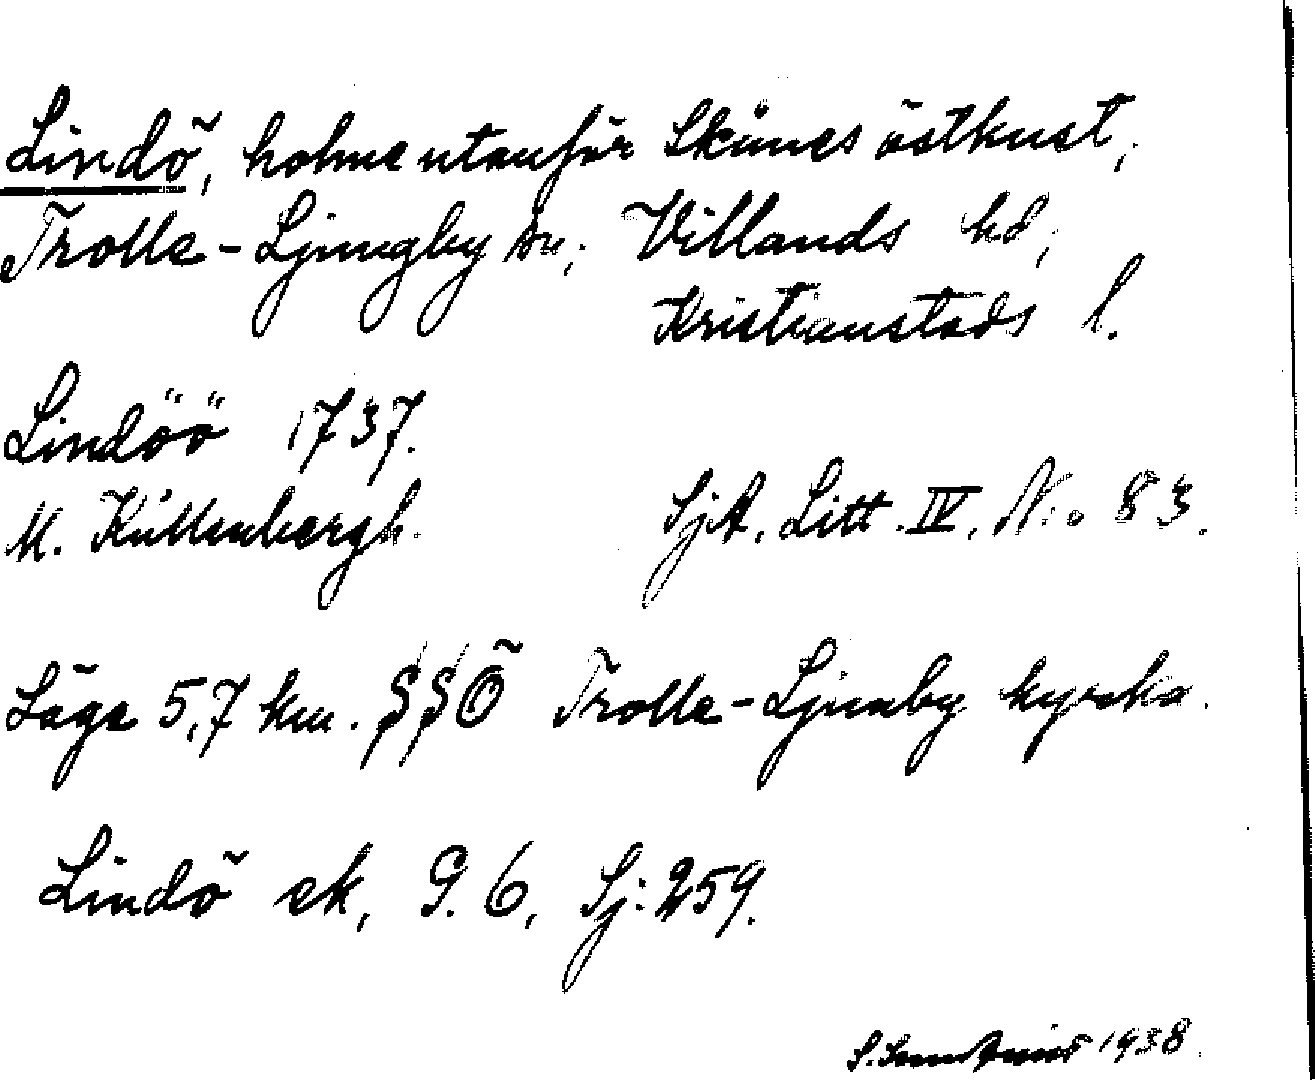 Lindö, holme utanför Skånes östkust,
Trolle-Ljungby sn; Villands hd,
Kristianstads l.
Lindöö 1737.
M. Kullenbergh. SjA. Litt. IV. No 83.
Läge 5,7 km. SSÖ Trolle-Ljunby kyrka.
Lindö ek, G. 6, Sj: 259.
1938